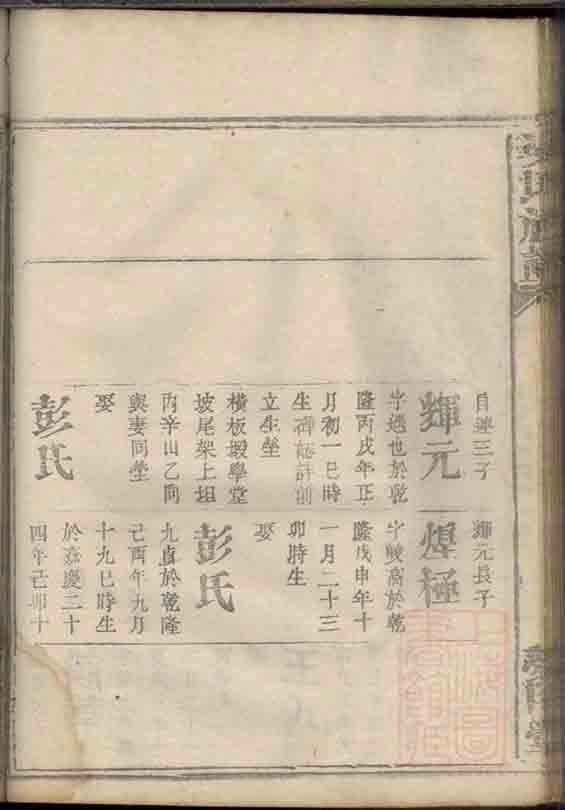 自連三子
輝元
字遇也於乾
隆丙戌年正
月初一巳時
生 計創
立生塋
橫板塅學堂
坡尾架上坦
內辛山乙向
與妻同塋
娶
彭氏
輝元長子
煌極
字峻高於乾
隆戊申年十
一月二十三
卯時生
娶
彭氏
九直於乾隆
己酉年九月
十九巳時生
於嘉慶二十
四年己卯十
氏族譜
堂
上海圖
書館藏